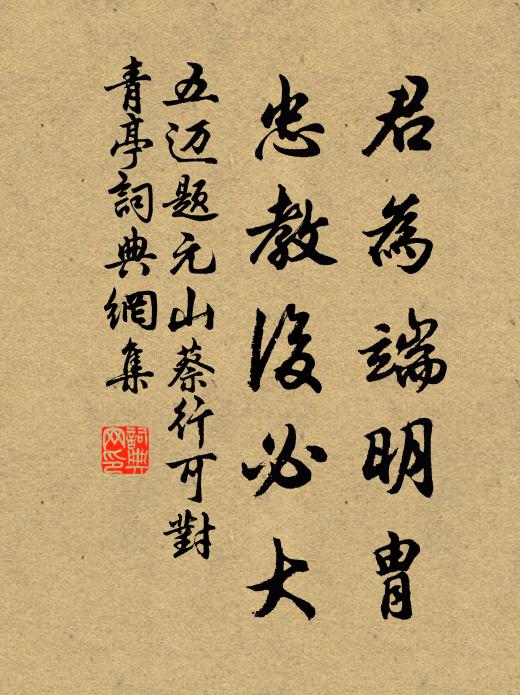 君為端明胄
忠教後必大
五迈题元山蔡行可對
青亭詞典網集
詞典网印